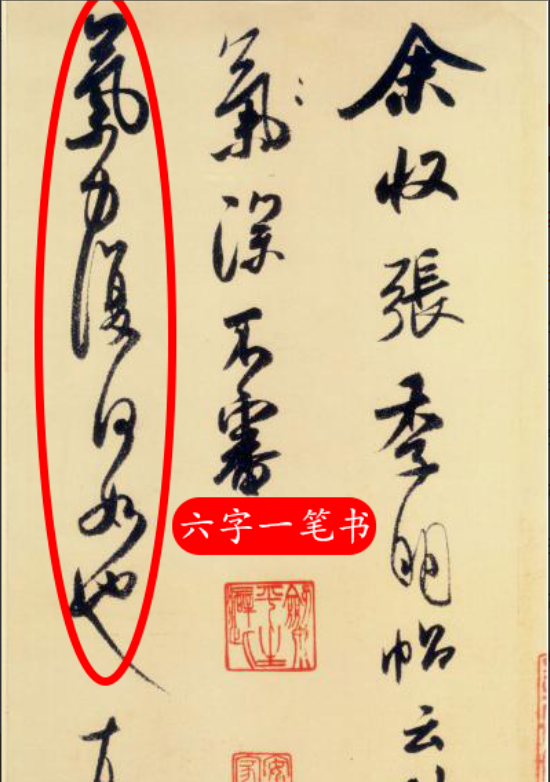 余收張季明帖云
氣深不審
氣力復何如也
六字一笔书